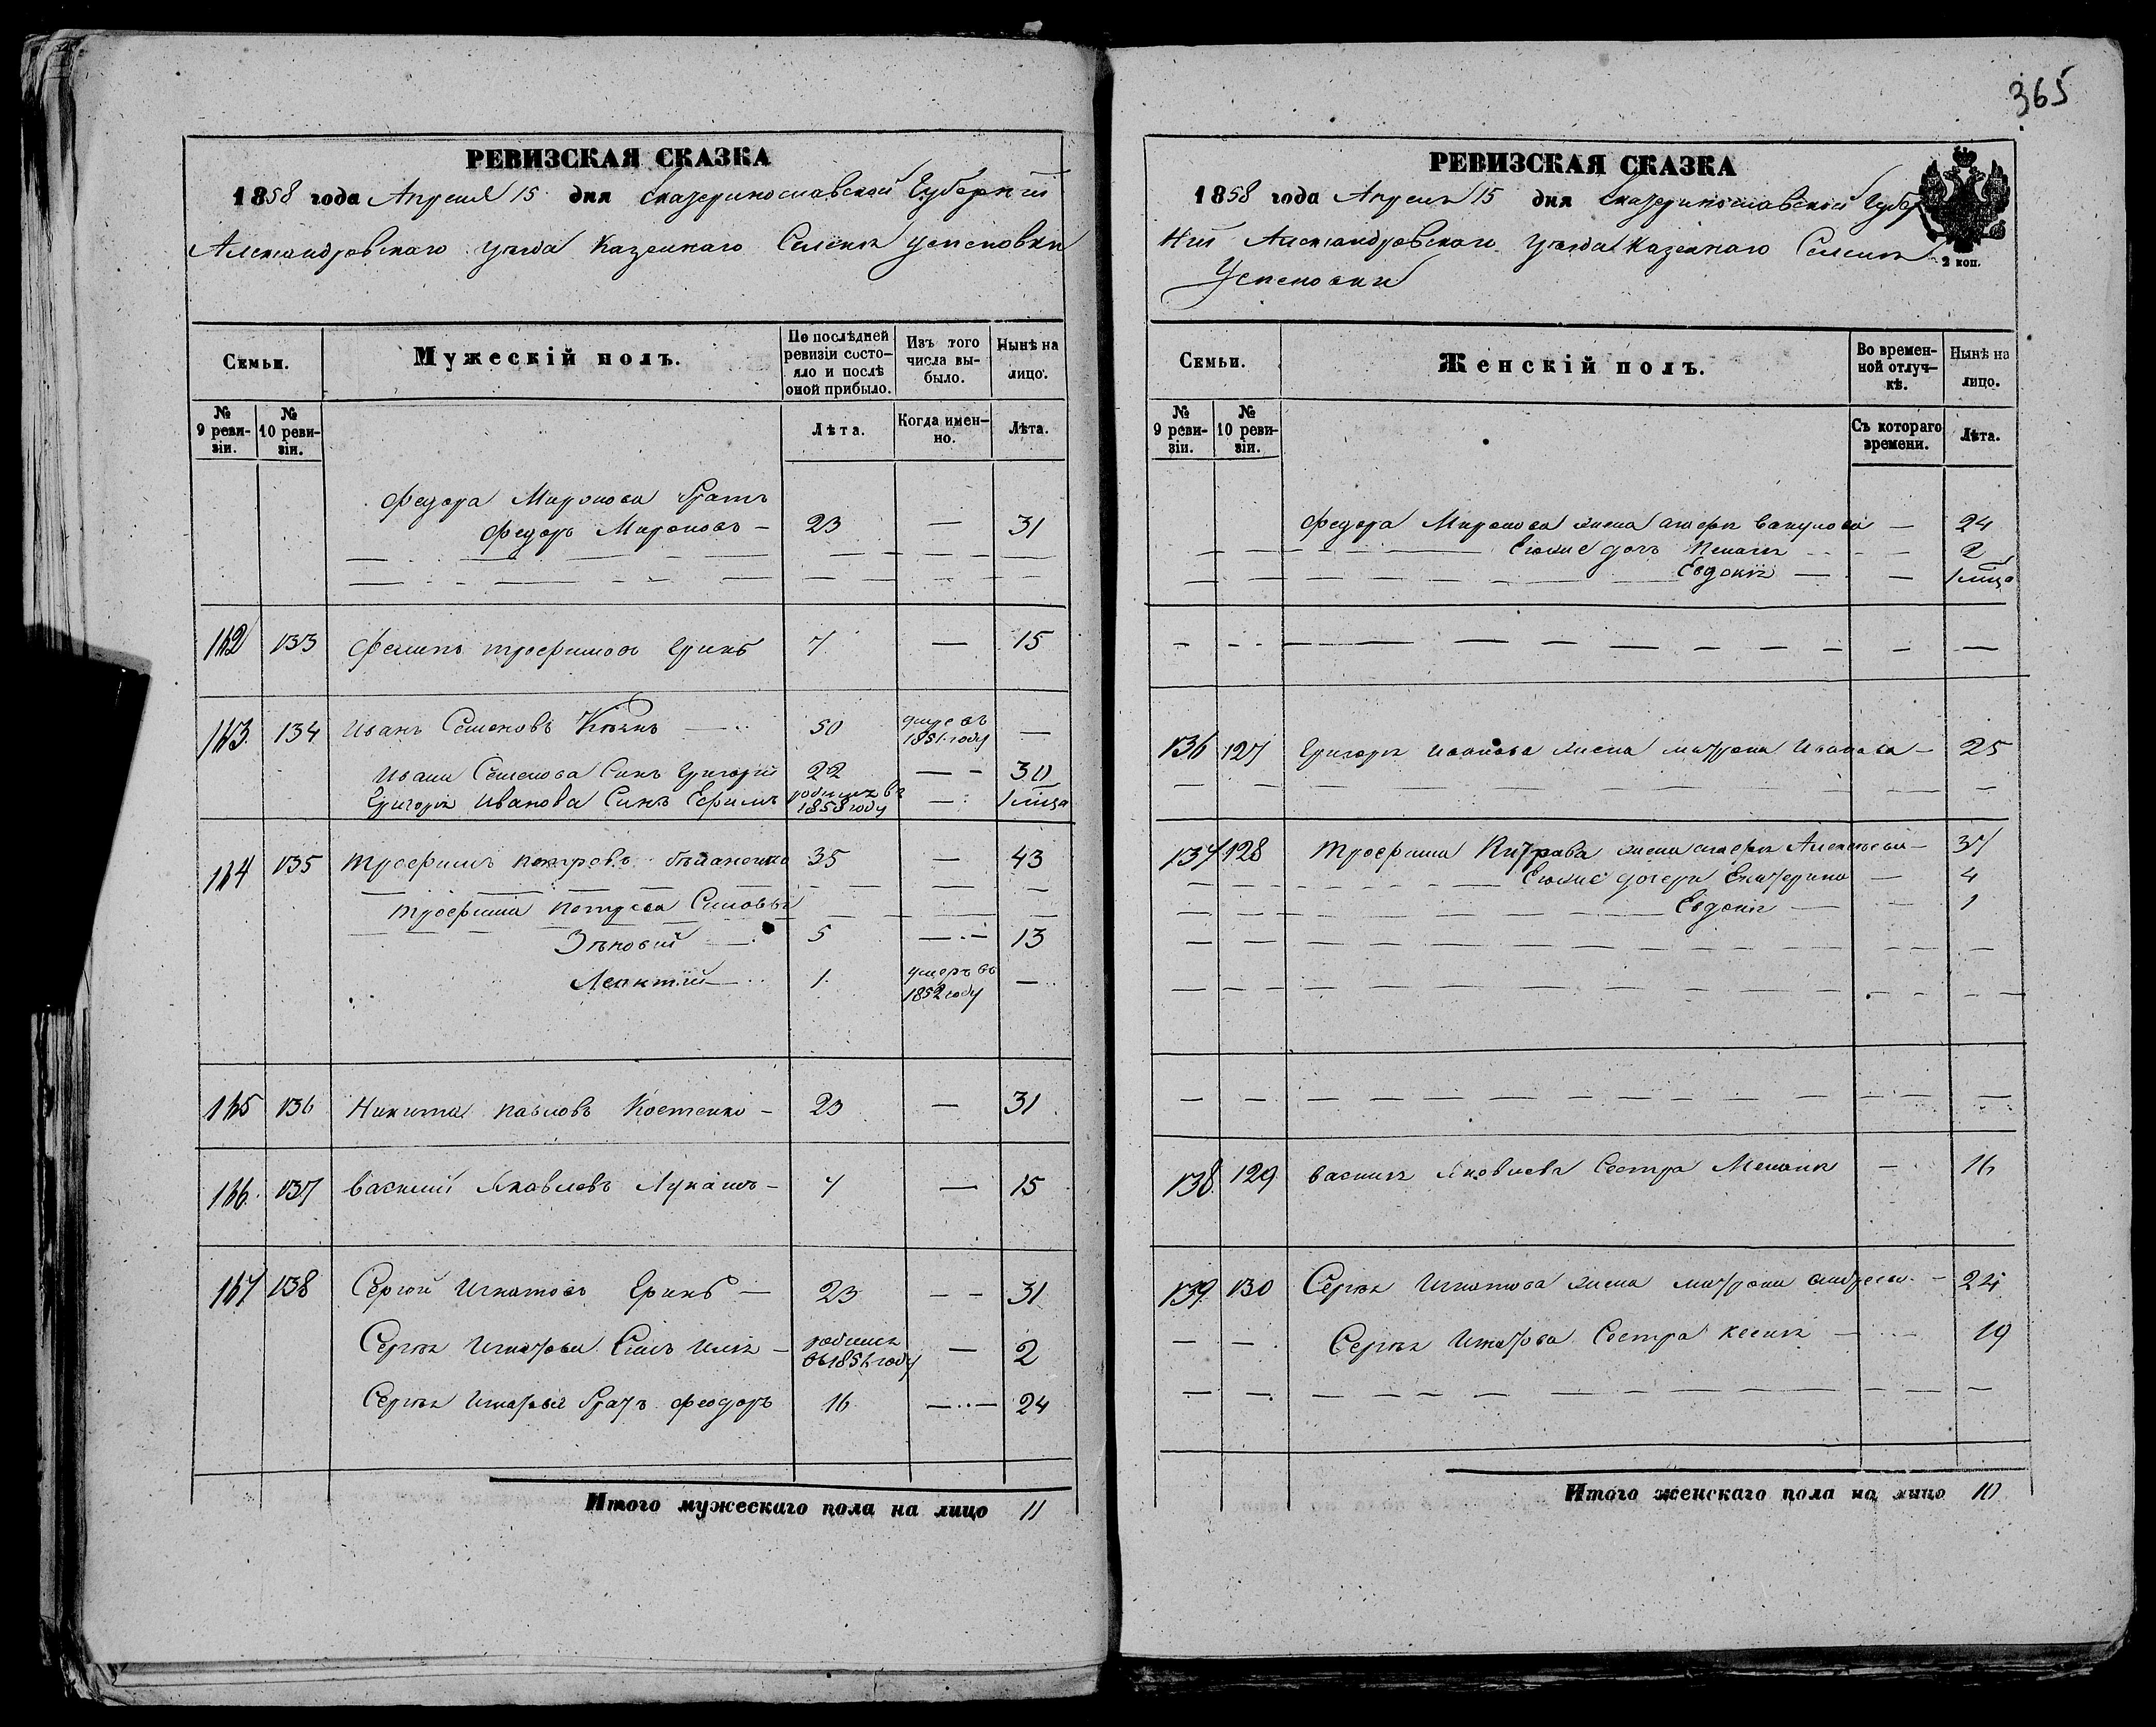 РЕВИЗСКАЯ СКАЗКА
1858 года Апреля 15 дня Екатеринославской Губернии
Александровского уезда Казенного Селения Успеновки
Семьи.
Мужескій полъ.
По послѣдней ревизіи состояло и послѣ оной прибыло.
Изъ того числа выбыло.
Нынѣ на лицо.
№ 9 ревизіи.
№ 10 ревизіи.
Лѣта.
Когда именно.
Лѣта.
Федора Миронова братъ
Федоръ Мироновъ — 23 — 31
142 133 Филипъ Трофимовъ Ерикъ 7 — 15
143 134 Иванъ Семеновъ 50 умре въ 1851 году —
Ивана Семенова Синъ Григорий 22 — 30
Григория Иванова Синъ Ефимъ родился въ 1858 году — 1 мица
144 135 Трофимъ Петровъ 35 — 43
Трофима Петрова Синовья
Зѣновий 5 — 13
Леонтий 1 умеръ въ 1852 году —
145 136 Никита Павловъ Костенко — 23 — 31
146 137 Василий Яковлевъ Лукашъ — 7 — 15
147 138 Сергей Игнатовъ Ерикъ — 23 — 31
Сергея Игнатова Синъ Илья — родился въ 1856 году — 2
Сергея Игнатова братъ Феодоръ 16 — 24
Итого мужескаго пола на лицо 11
365
РЕВИЗСКАЯ СКАЗКА
1858 года Апреля 15 дня Екатеринославской Губер
нии Александровского уезда Казенного Селения
Успеновки
2 коп.
Семьи.
Женскій полъ.
Во временной отлучкѣ.
Нынѣ на лицо.
№ 9 ревизіи.
№ 10 ревизіи.
Съ котораго времени.
Лѣта.
Федора Миронова жена Вакулова — 24
дочь 2
Евдокия — 1 мица
136 127 Григория Иванова жена Матрона Иванова — 25
137 128 Трофима Питрова жена Алексеева — 37
дочери Екатерина — 4
Евдокия — 1
138 129 Василия Яковлева Сестра Мелания — 16
139 130 Сергея Игнатова жена Матрона Андреева — 24
Сергея Игнатова Сестра Ксения — 19
Итого женскаго пола на лицо 10